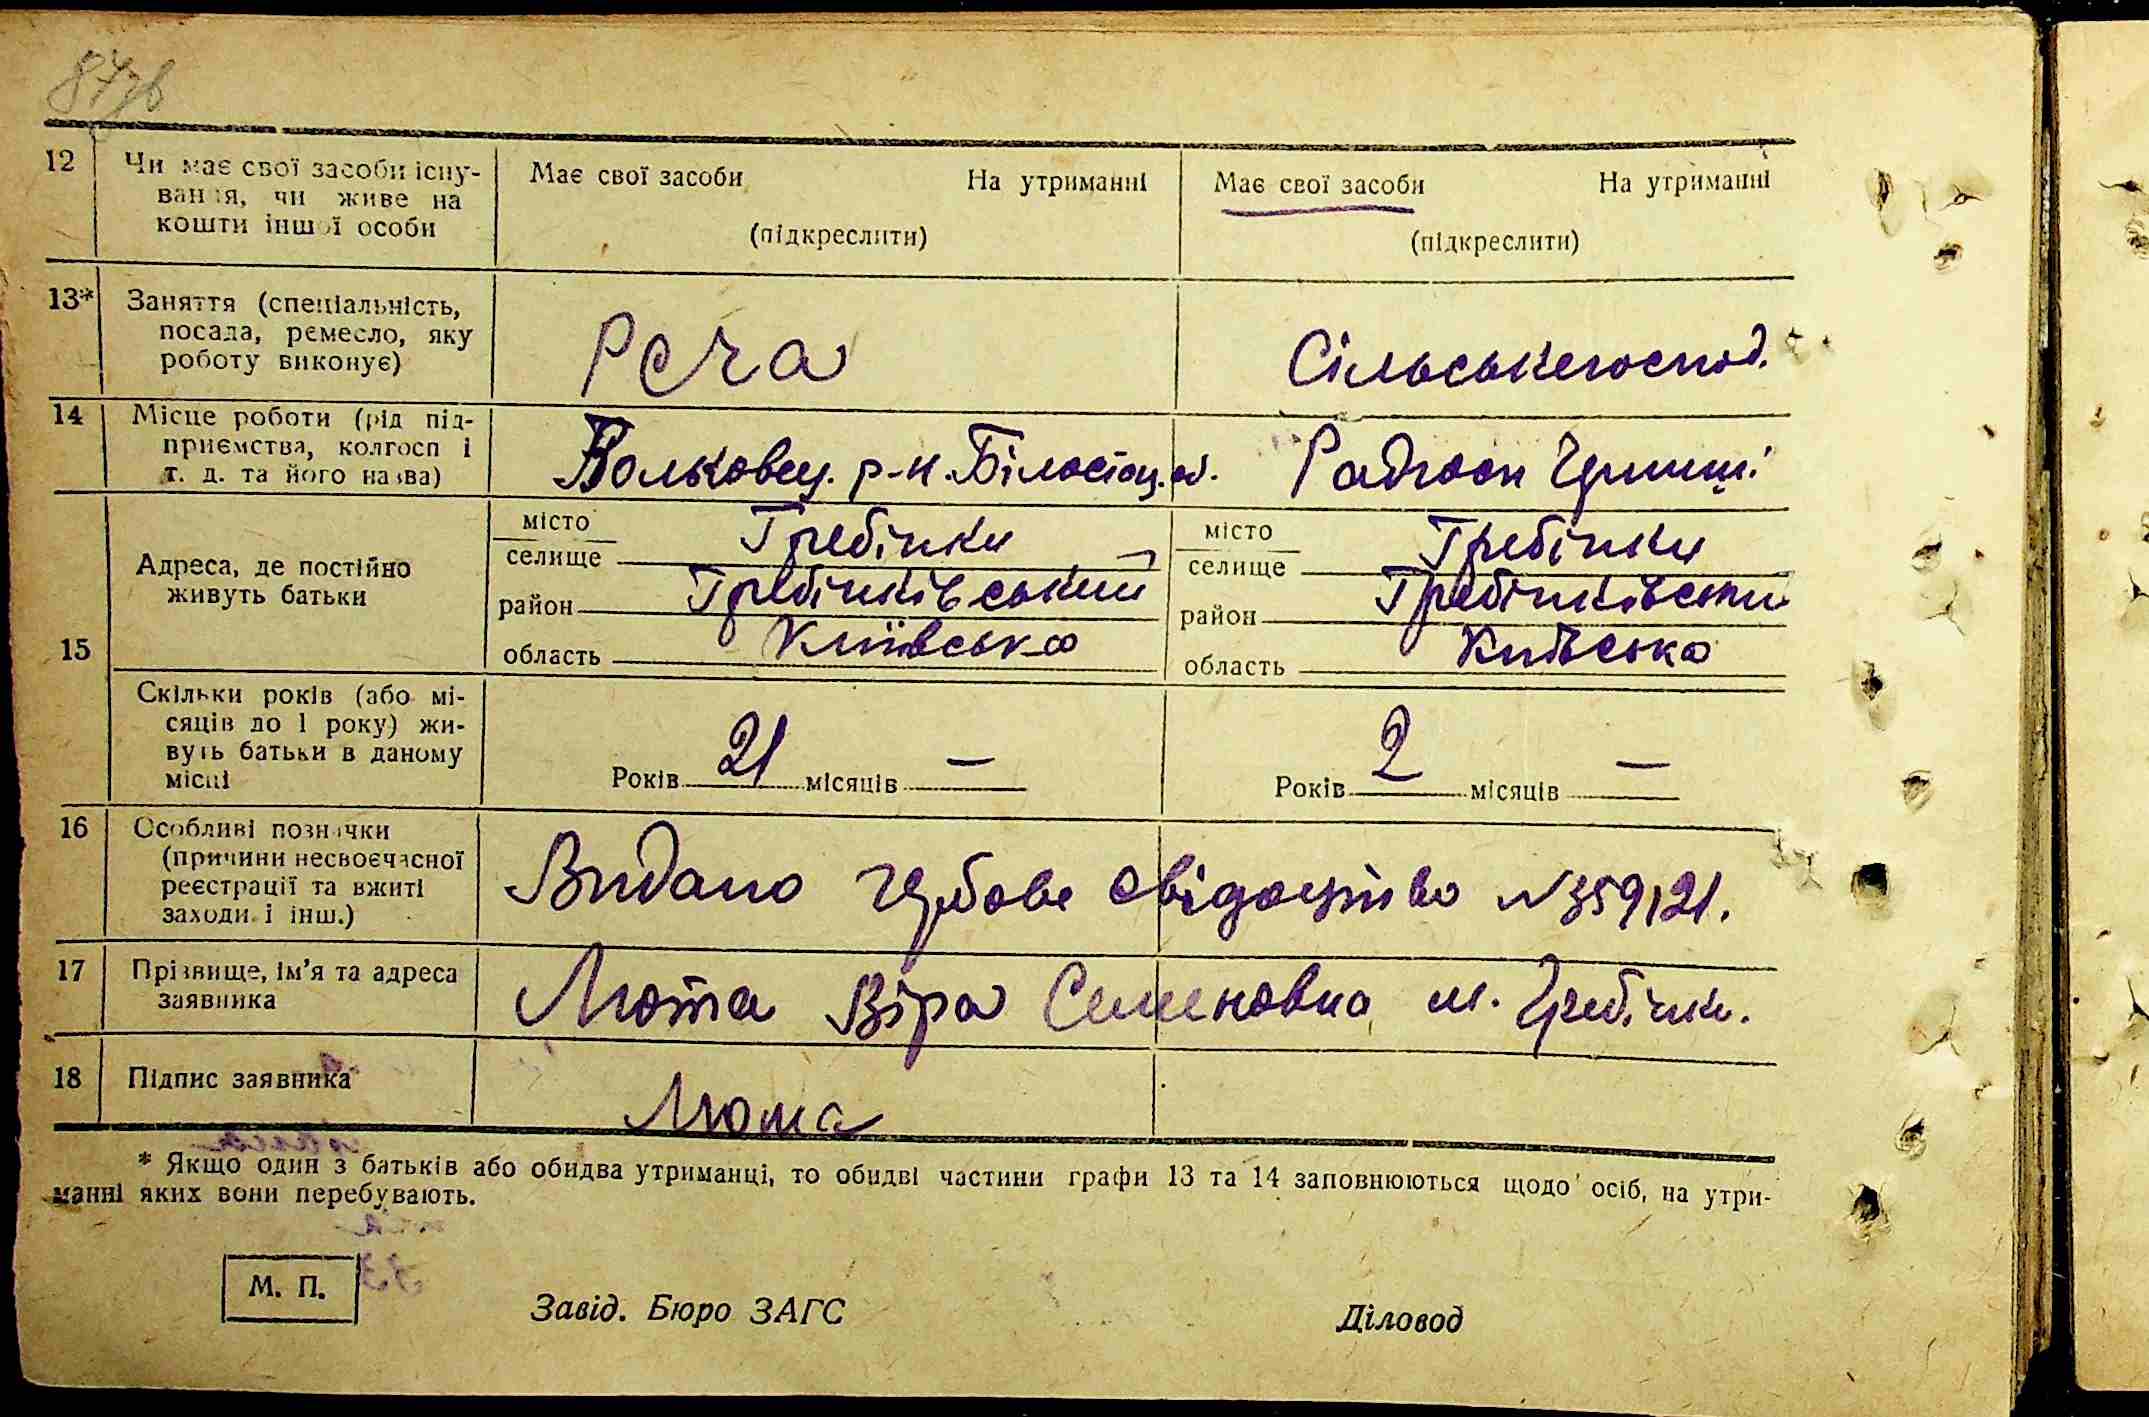 87зв
12 Чи має свої засоби існу-
вання, чи живе на
кошти іншої особи
Має свої засоби На утриманні
(підкреслити)
Має свої засоби На утриманні
(підкреслити)
13* Заняття (спеціальність,
посада, ремесло, яку
роботу виконує)
РСЧА
Сільськегоспод.
14 Місце роботи (рід під-
приємства, колгосп і
т. д. та його назва)
Вольковец. р-н. Білостоц. об.
Радгосп
15 Адреса, де постійно
живуть батьки
місто
селище Гребінки
район Гребінківський
область Київська
місто
селище Гребінки
район Гребінківський
область Київська
Скільки років (або мі-
сяців до 1 року) жи-
вуть батьки в даному
місці
Років 21 місяців —
Років 2 місяців —
16 Особливі позначки
(причини несвоєчасної
реєстрації та вжиті
заходи і інш.)
Видано гербове свідоцтво №359121.
17 Прізвище, ім’я та адреса
заявника
Люта Віра Семеновна м. Гребінки.
18 Підпис заявника
Люта
* Якщо один з батьків або обидва утриманці, то обидві частини графи 13 та 14 заповнюються щодо осіб, на утри-
манні яких вони перебувають.
М. П.
Завід. Бюро ЗАГС
Діловод